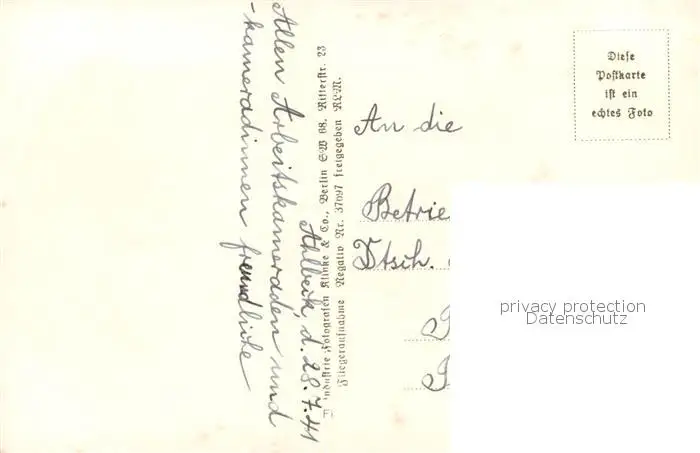 Ahlbeck, d. 28.7.41
Allen Arbeitskameraden und
-kameradinnen freundliche
Industrie-Fotografen Klinke & Co., Berlin SW 68, Ritterstr. 23
Fliegeraufnahme Negativ Nr. 37097 freigegeben RLM.
Fi
An die
Betrie
Dtsch.
Diese
Postkarte
ist ein
echtes Foto
privacy protection
Datenschutz